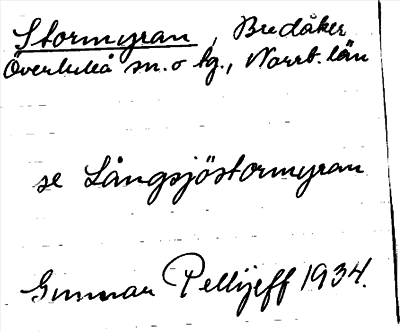 Stormyran, Bredåker
Överluleå sn. o tg., Norrb. län
se Långsjöstormyran
Gunnar Pellijeff 1934.